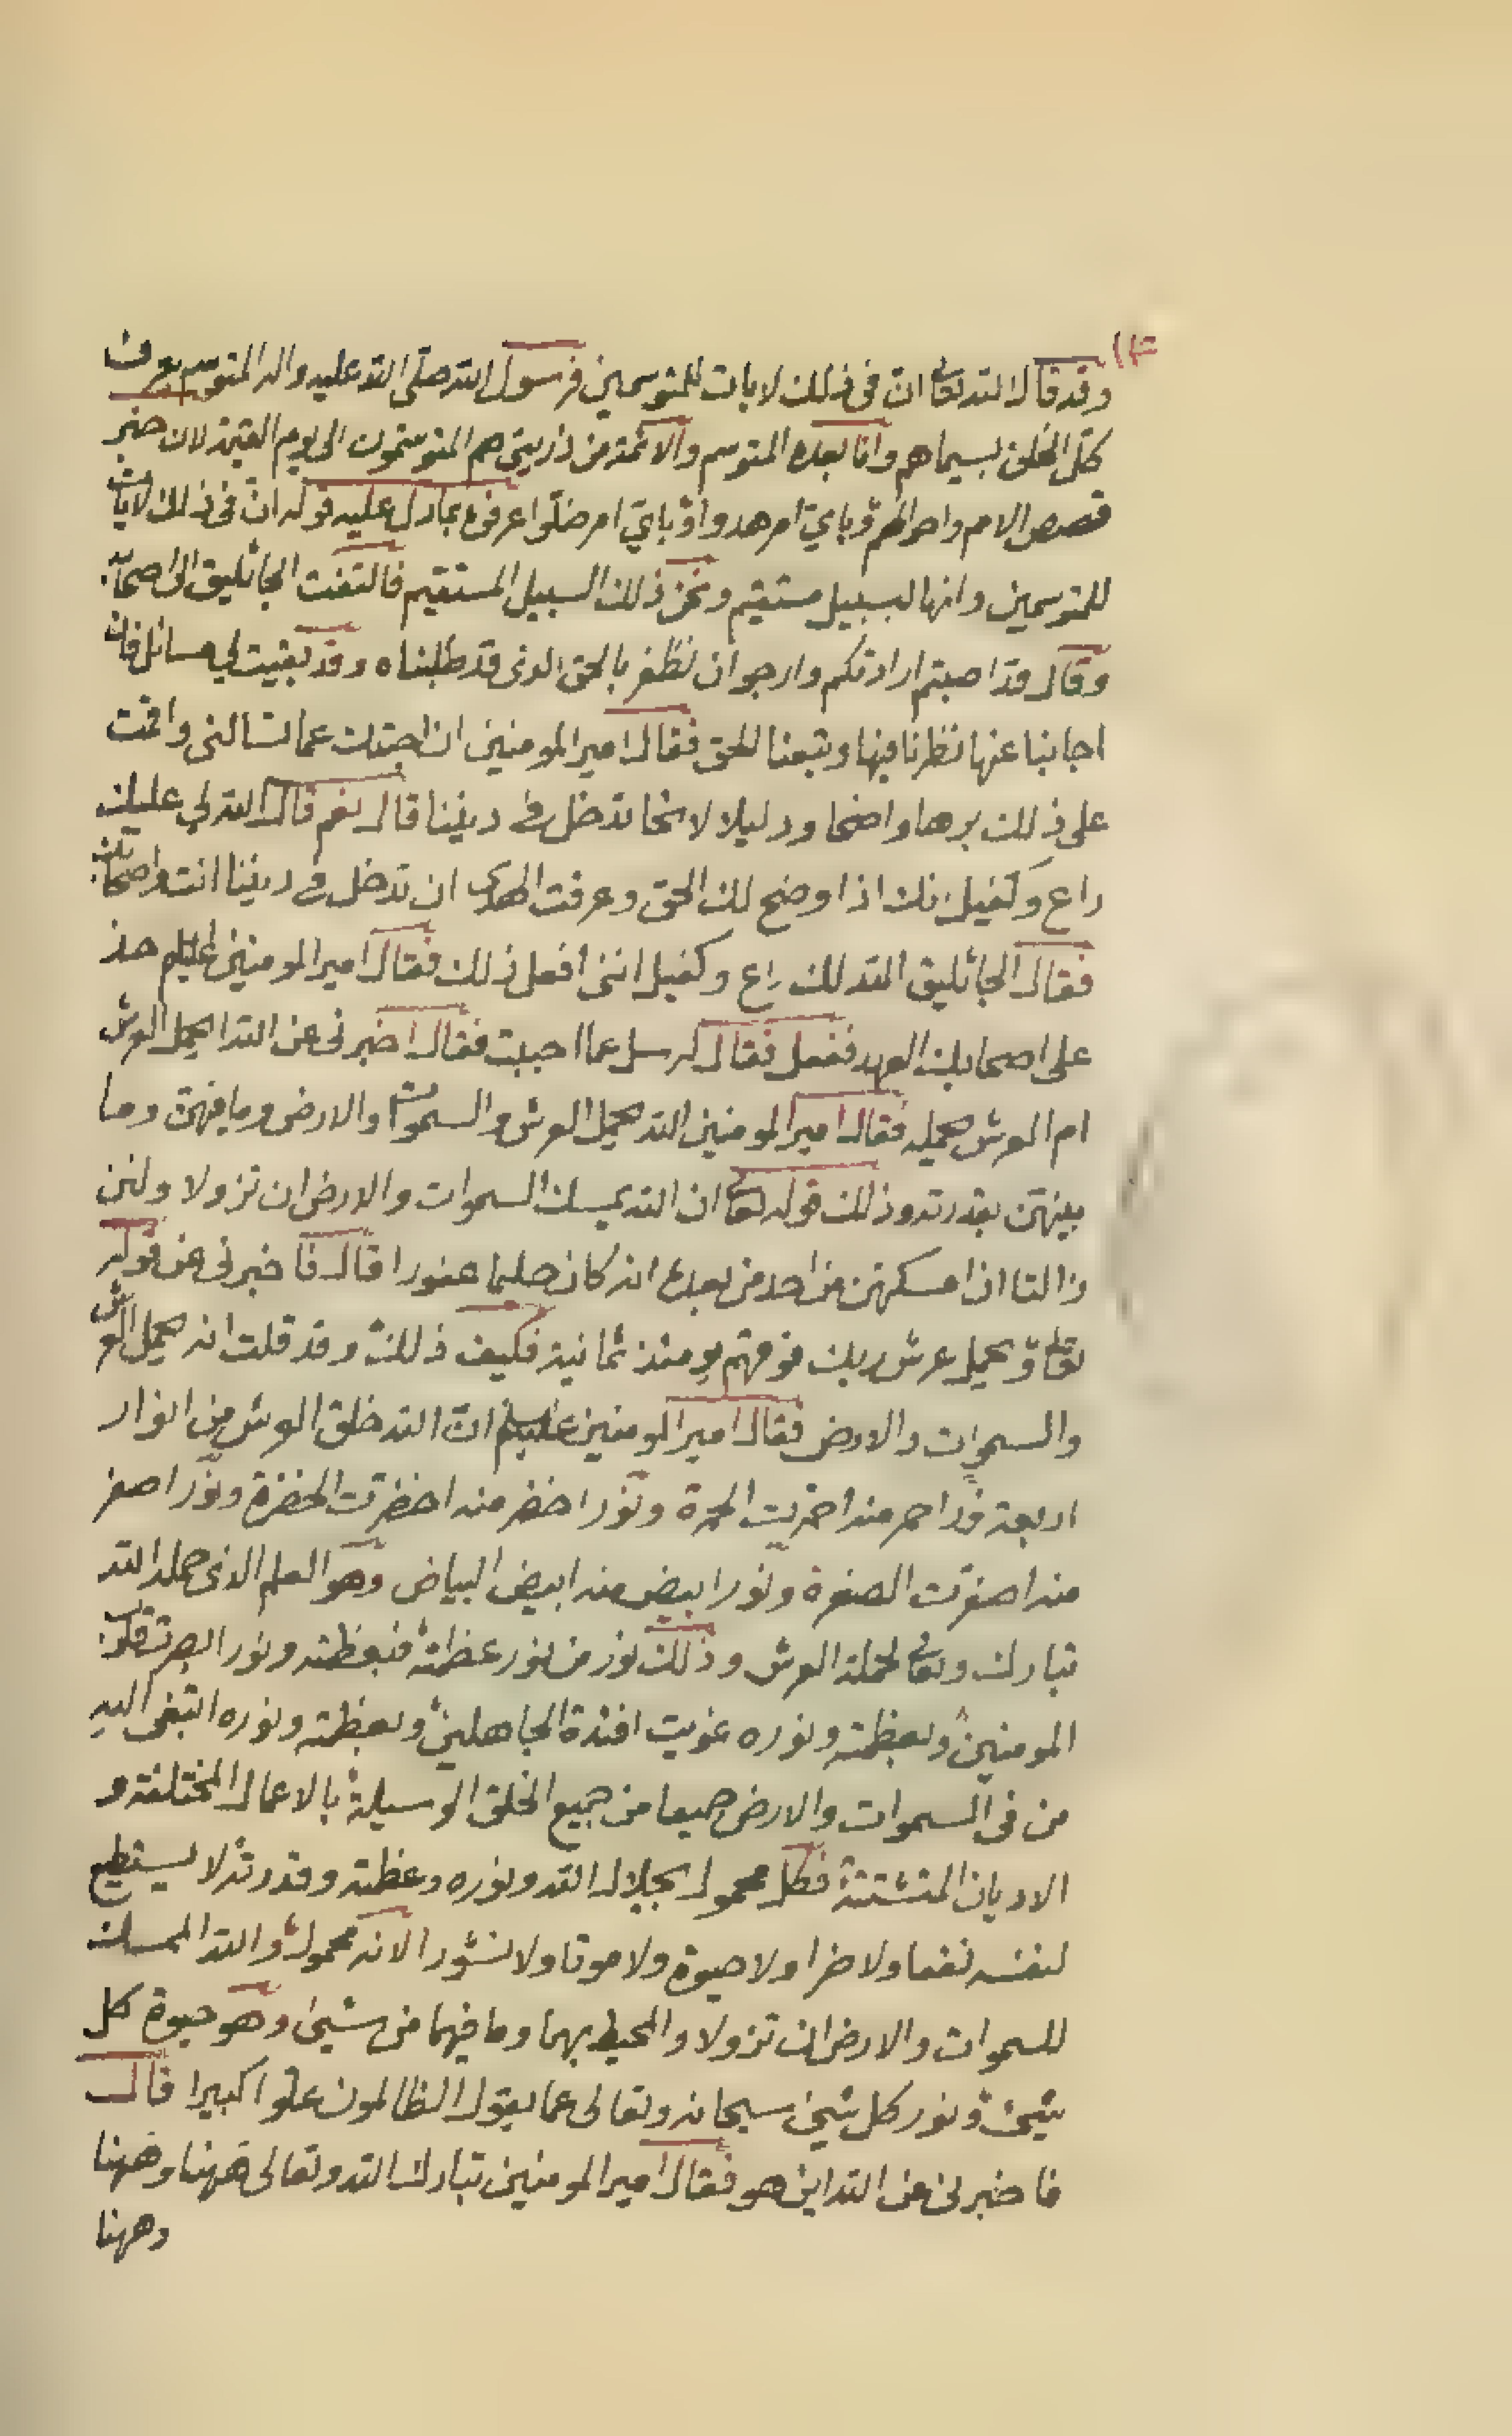 وقد قال الله تعا ان فى ذلك لايات للمتوسمين فرسول الله صلى الله عليه واله المتوسم يعرف
كل الخلق بسيماهم وانا بعده المتوسم والائمة من ذريتى هم المتوسمون الى يوم القيمة لان خبر
قصص الامم واحوالهم وباي امر هدوا وباي امر ضلوا عرفوه بما دل عليه قوله ان فى ذلك لايات
للمتوسمين وانها لبسبيل مستقيم ونحن ذلك السبيل المستقيم فالتفت الجاثليق الى اصحابه
وقال قد اصبتم ارادتكم وارجو ان نظفر بالحق الذى قد طلبناه وقد بقيت لي مسائل فان
اجابنا عنها نظرنا فيها وتبعنا للحق فقال امير المومنين ان اجبتك عما تسالنى واقمت
على ذلك برهانا واضحا ودليلا لائحا تدخل فى ديننا قال نعم قال الله لي عليك
راع وكفيل انك اذا وضح لك الحق وعرفت الهدى ان تدخل فى ديننا انت واصحابك
فقال الجاثليق الله لك راع وكفيل اننى افعل ذلك فقال امير المومنين عليلم خذ
على اصحابك العهد ففعل فقال له سل عما احببت فقال اخبرنى عن الله ايحمل العرش
ام العرش يحمله فقال امير المومنين الله يحمل العرش والسموات والارض وما فيهن وما
بينهن بقدرته وذلك قوله تعا ان الله يمسك السموات والارض ان تزولا ولئن
زالتا ان امسكهن من احد من بعده انه كان حليما غفورا قال فاخبرنى عن قوله
تعا ويحمل عرش ربك فوقهم يومئذ ثمانية فكيف ذلك وقد قلت انه يحمل العرش
والسموات والارض فقال امير المومنين عليلم ان الله خلق العرش من انوار
اربعة نور احمر منه احمرت الحمرة ونور اخضر منه اخضرت الخضرة ونور اصفر
منه اصفرت الصفرة ونور ابيض منه ابيض البياض وهو العلم الذى حمله الله
تبارك وتعا لحملة العرش وذلك نور من نور عظمته فبعظمته ونوره ابصرت قلوب
المومنين وبعظمته ونوره غويت افئدة الجاهلين وبعظمته ونوره ابتغى اليه
من فى السموات والارض جميعا من جميع الخلق الوسيلة بالاعمال المختلفة و
الاديان المتشتتة فكل محمول بجلال الله ونوره وعظمته وقدرته لا يستطيع
لنفسه نفعا ولا ضرا ولا حيوة ولا موتا ولا نشورا لانه محمول والله الممسك
للسموات والارض ان تزولا والمحيط بهما وما فيهما من شيئ وهو حيوة كل
شيئ ونور كل شيئ سبحانه وتعالى عما يقول الظالمون علوا كبيرا قال
فاخبرنى عن الله اين هو فقال امير المومنين تبارك الله وتعالى ههنا وههنا
وههنا